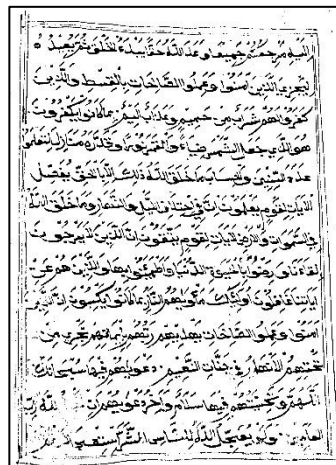 اليه مرجعكم جميعا وعد الله حقا انه يبدء الخلق ثم يعيده
ليجزي الذين امنوا وعملوا الصالحات بالقسط والذين
كفروا لهم شراب من حميم وعذاب اليم بما كانوا يكفرون
هو الذي جعل الشمس ضياء والقمر نورا وقدره منازل لتعلموا
عدد السنين والحساب ما خلق الله ذلك الا بالحق يفصل
الآيات لقوم يعلمون ان في اختلاف اليل والنهار وما خلق الله
في السموات والارض لآيات لقوم يتقون ان الذين لا يرجون
لقاءنا ورضوا بالحيوة الدنيا واطمئنوا بها والذين هم عن
اياتنا غافلون اولئك مأويهم النار بما كانوا يكسبون ان الذين
امنوا وعملوا الصالحات يهديهم ربهم بايمانهم تجري من
تحتهم الانهار في جنات النعيم دعويهم فيها سبحانك
اللهم وتحيتهم فيها سلام واخر دعويهم ان لله رب
العالمين ولو يعجل الله للناس الشر استعجالهم